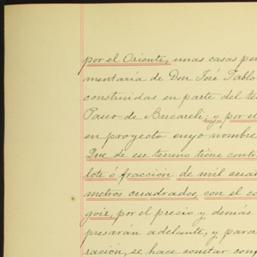 por el Oriente, unas casas per
mentaría de Don José Pablo
construidas en parte del te
Paseo de Bucareli, y por el
en proyecto cuyo nombre
Que de ese terreno tiene cont
lote ó fracción de mil
metros cuadrados, con el
por el precio y demás
presarán adelante, y para
ración, se hace constar con